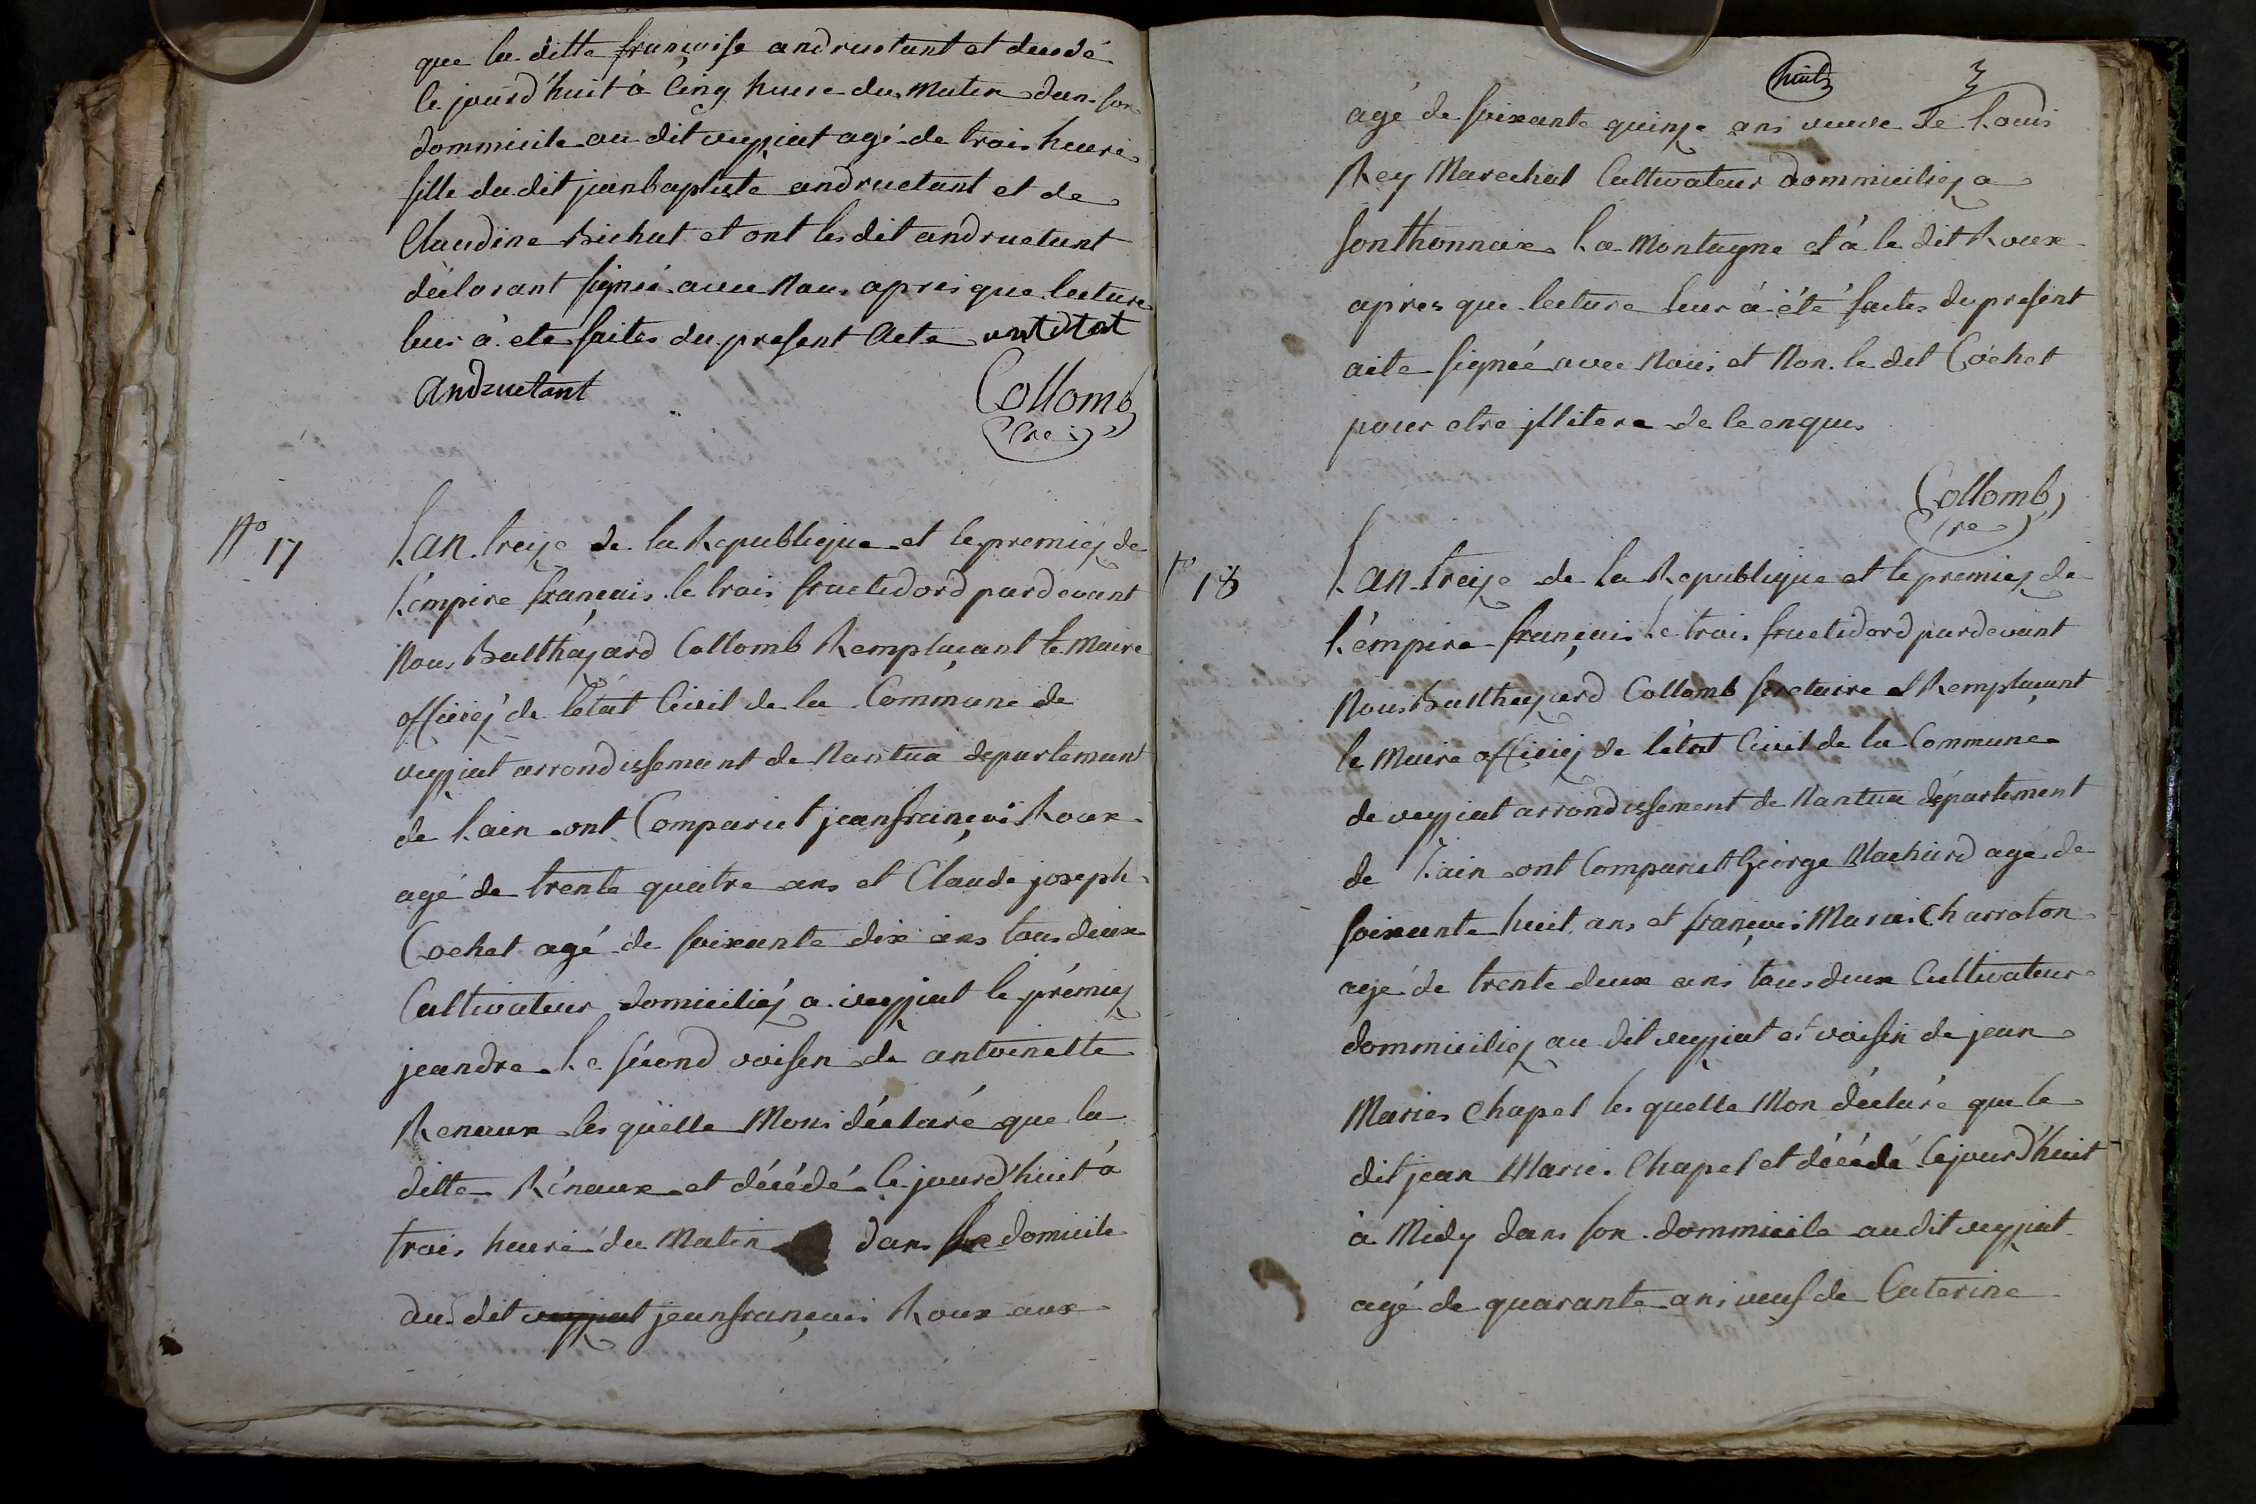 que la ditte françoise andructant et decédé
le jourd'huit à Cinq heure du Matin dans son
dommicile au dit veyziat agé de trois heure
fille du dit jeanbaptiste andructant et de
Claudine Bichat et ont les dit andructant
déclarant signié avec Nous apres que lecture
leur à été faites du present Acte
Andructant Collomb
Cre
N° 17
L'an treize de la Republique et le premiez de
L'émpire français le trois fructidord pardevant
Nous Balthazard Collomb Remplaçant le Maire
officiez de l'état Civil de la Commune de
veyziat arrondissemant de Nantua departemant
de L'ain ont Comparut jeanfrançois Roux
agé de trente quatre ans et Claude joseph
Cochet agé de soixante dix ans tous deux
Cultivateur domiciliez a veyziat le prémiez
jeandre Le sécond voisin de antoinette
Renaux les quelle Mons déclaré que la
ditte Rénaux et décédé le jourd'huit à
trois heure du Matin dans son domicile
du dit veyziat jeanfrançois Roux aux
huit
agé de soixante quinze ans veuve de Louis
Rey Marechal Cultivateur dommiciliez a
Sonthonnax La Montagne et à le dit Roux
apres que lecture leur à été faites du present
acte signié avec Nous et Non le dit Cochet
pour etre jlliteré de le enquis
Collomb
Cre
18
L'an treize de la Republique et le premiez de
L'émpire français Le trois fructidord pardevant
Nous Balthazard Collomb Secretaire et Remplaçant
le Maire officiez de l'état Civil de la Commune
de veyziat arrondissement de Nantua département
de L'ain ont Comparut George Machard agé de
soixante huit ans et françois Marie Charroton
agé de trente deux ans tous deux Cultivateur
dommiciliez au dit veyziat et voisin de jean
Marie Chapel les quelle Mon déclaré que le
dit jean Marie Chapel et décédé le jourd'huit
à Midy dans son dommicile au dit veyziat
agé de quarante ans veuf de Caterine